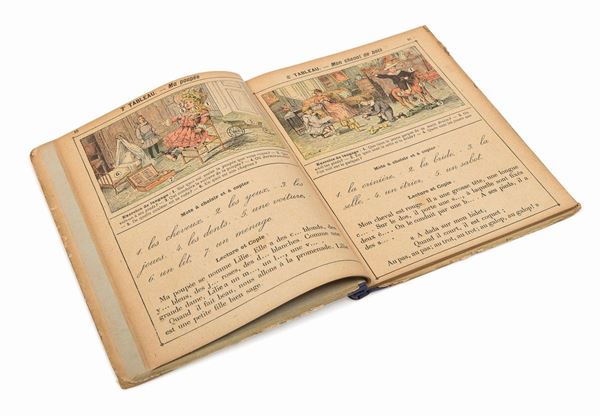 7e TABLEAU. — Ma poupée
Exercice de langage :
Mots à choisir et à copier
1. les cheveux. 2. les yeux. 3. les
joues. 4. les dents. 5. une voiture.
6. un lit. 7. un ménage.
Lecture et Copie :
Ma poupée se nomme Lilie. Elle a des c... blonds, des
y... bleus, des j... roses, des d... blanches. Comme une
grande dame, Lilie a un m... un l..., une v...
Quand il fait beau, nous allons à la promenade, Lilie
est une petite fille bien sage.
8e TABLEAU. — Mon cheval de bois
Exercice de langage :
Mots à choisir et à copier
1. la crinière. 2. la bride. 3. la
selle. 4. un étrier. 5. un sabot.
Lecture et Copie :
Mon cheval est rouge. Il a une grosse tête, une longue
c.... Sur le dos, il porte une s... à laquelle sont fixés
deux é.... On le conduit par une b... A ses pieds, il a
des s...
A dada sur mon bidet,
Quand il court, il est coquet :
Au pas, au pas, au trot, au trot, au galop, au galop!